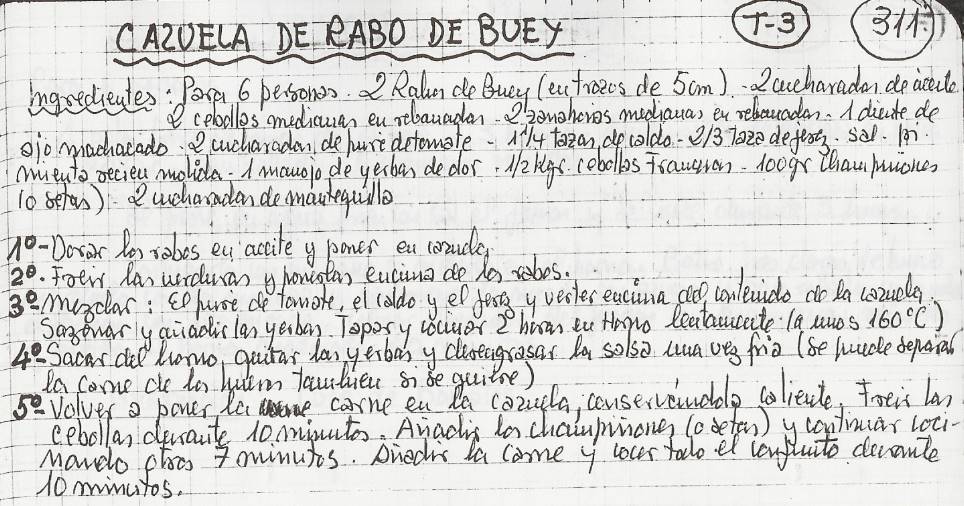 CAZUELA DE RABO DE BUEY
T-3
311
Ingredientes: Para 6 personas. 2 Rabos de Buey (en trozos de 5cm). - 2 cucharadas de aceite
2 cebollas medianas en rebanadas - 2 zanahorias medianas en rebanadas - 1 diente de
ajo machacado. 2 cucharadas de puré de tomate - 1 1/4 tazas de caldo - 2/3 taza de jerez. Sal. Pi-
mienta recien molida - 1 manojo de yerbas de olor. 1/2 kgr. cebollas francesas - 100 gr Champiñones
(o setas) - 2 cucharadas de mantequilla
1º- Dorar los rabos en aceite y poner en cazuela.
2º. Freir las verduras y ponerlas encima de los rabos.
3º Mezclar: El puré de tomate, el caldo y el jerez y verter encima del contenido de la cazuela.
Sazonar y añadir las yerbas. Tapar y cocinar 2 horas en Horno lentamente. (a unos 160°C)
4º Sacar del horno, quitar las yerbas y desengrasar la salsa una vez fria (se puede separar
la carne de los huesos tambien si se quiere)
5º Volver a poner la carne en la cazuela, conservándola caliente. Freir las
cebollas durante 10 minutos. Añadir los champiñones (o setas) y continuar coci-
nando otros 7 minutos. Añadir la carne y cocer todo el conjunto durante
10 minutos.